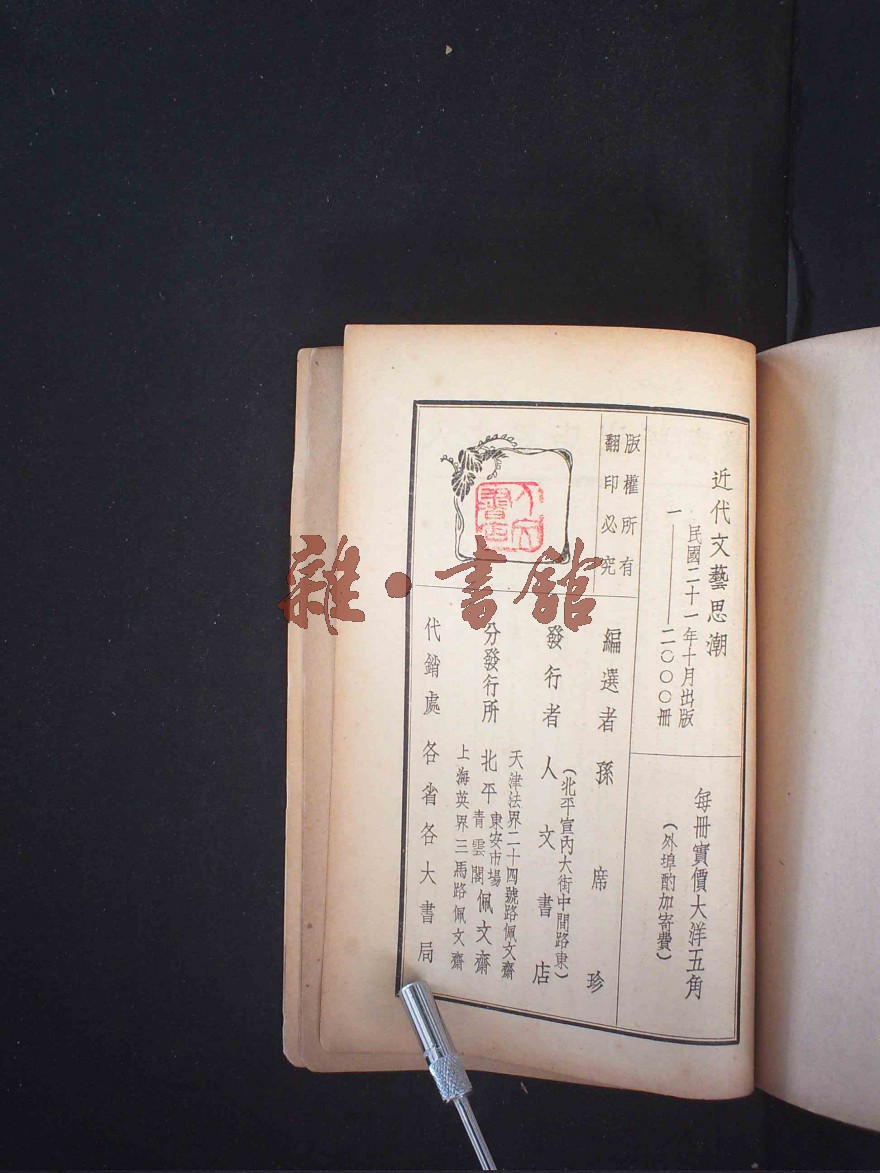 近代文藝思潮
民國二十一年十月出版
一——二〇〇〇冊
每冊實價大洋五角
(外埠酌加寄費)
版權所有
翻印必究
編選者 孫席珍
發行者 人文書店
(北平宣內大街中間路東)
分發行所
天津法界二十四號路佩文齋
北平 東安市場 青雲閣 佩文齋
上海英界三馬路佩文齋
代銷處 各省各大書局
人文書店
雜·書館